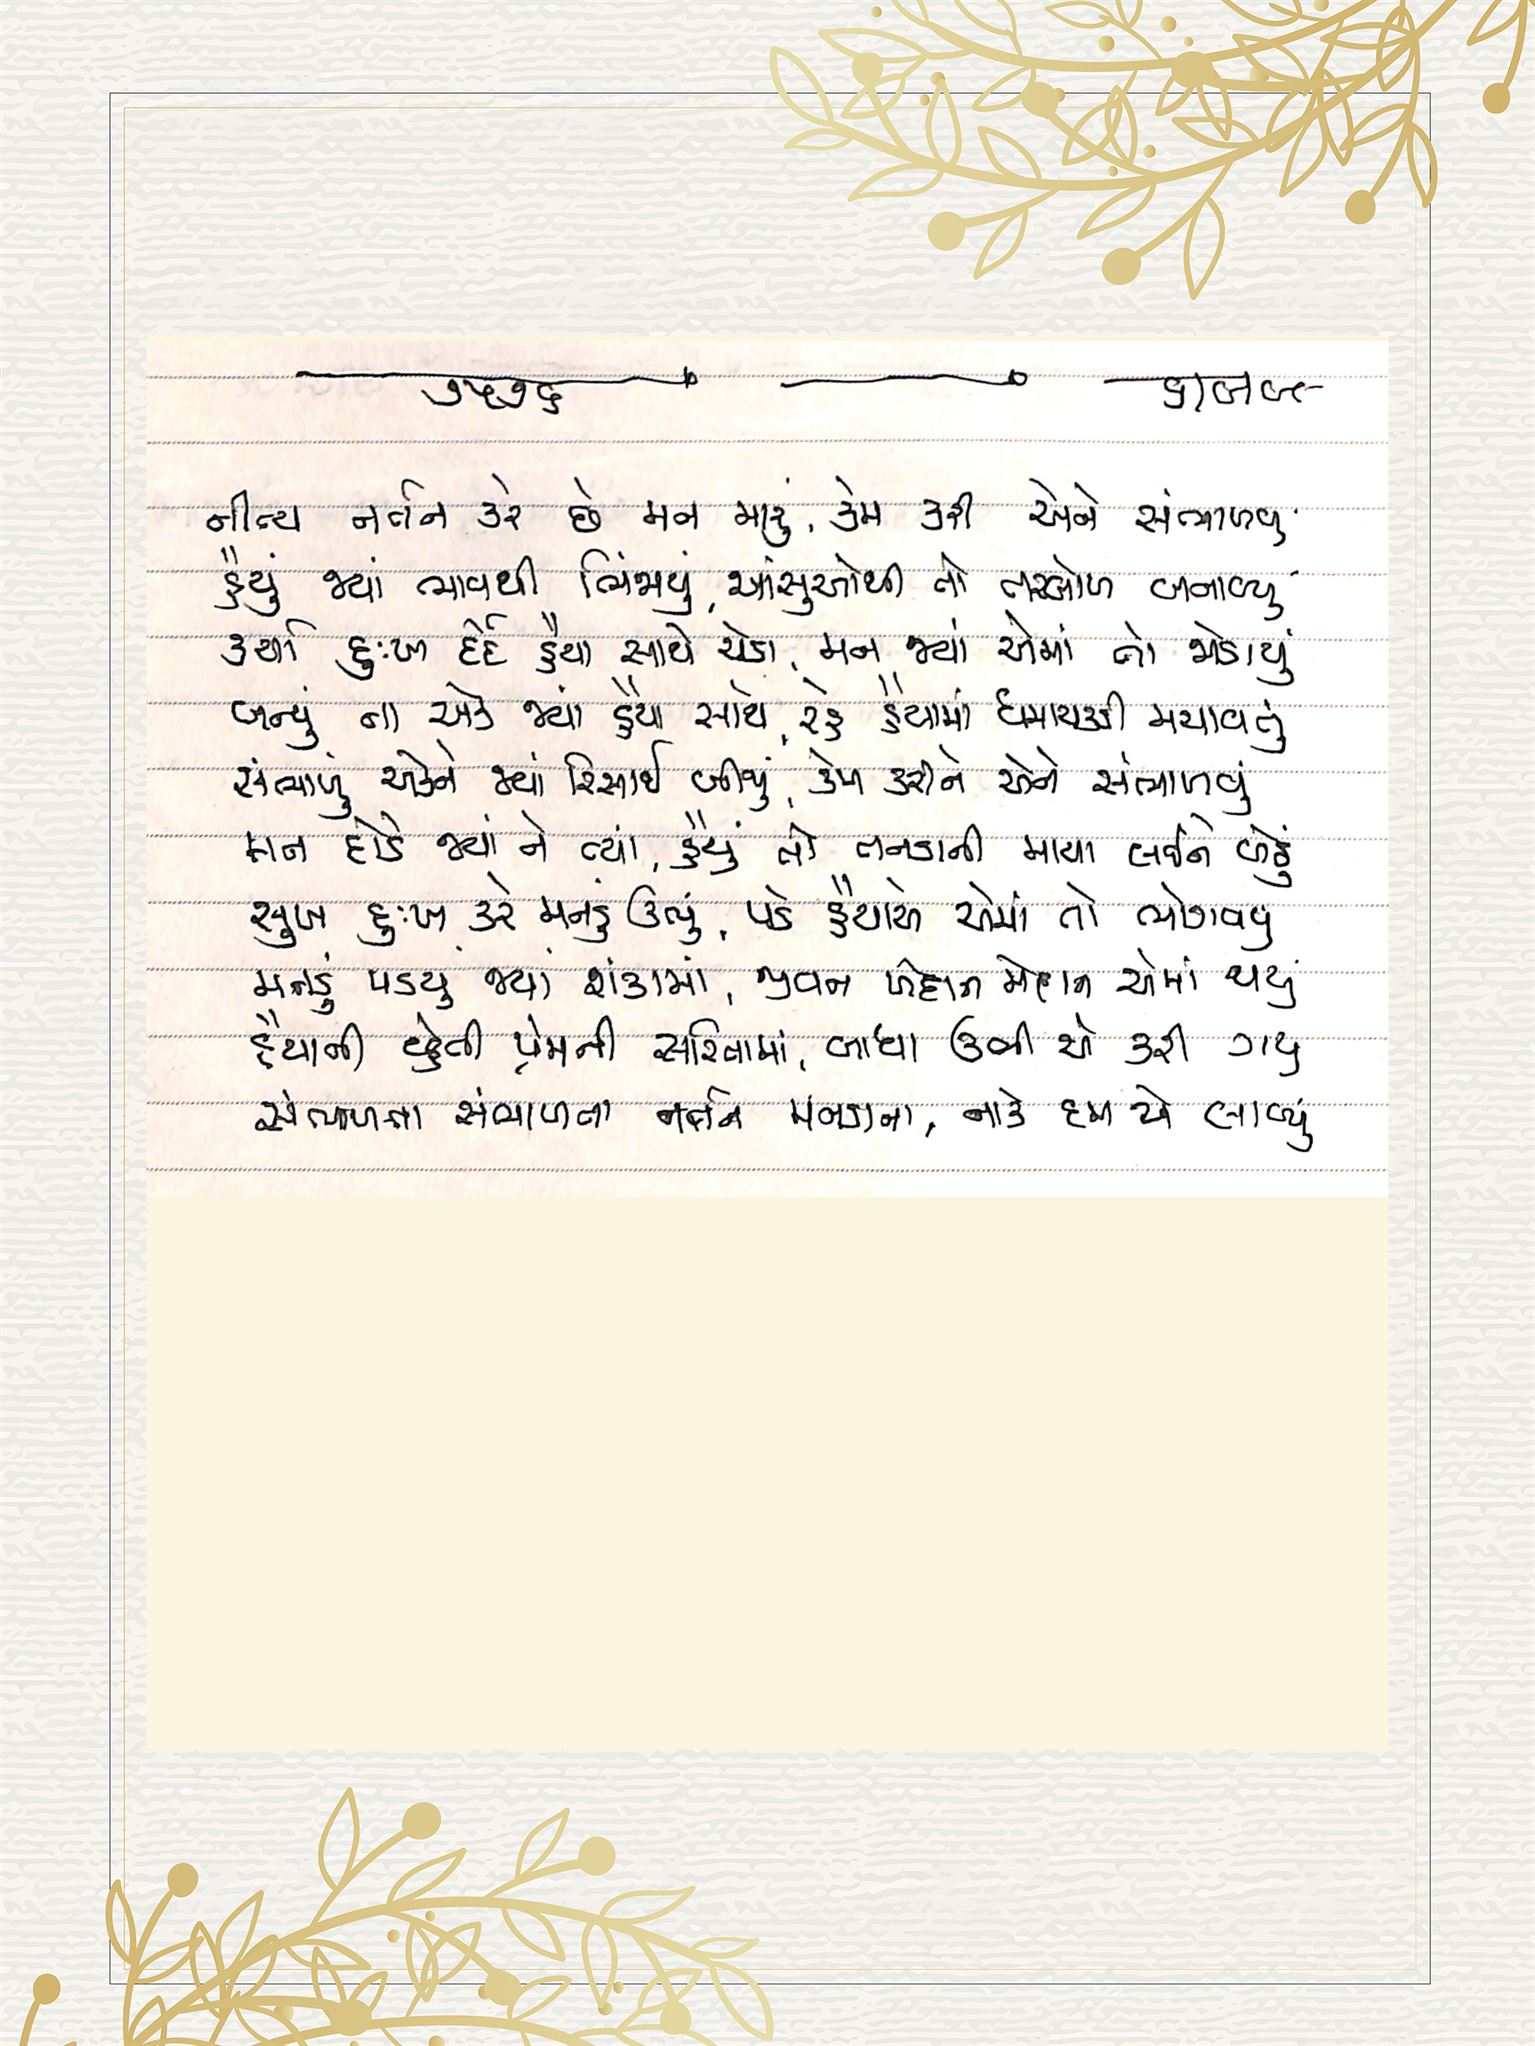 નીત્ય નર્તન કરે છે મન મારું, કેમ કરી એને સંભાળવુ
હૈયું જ્યાં ભાવથી ભિંજાયું, આંસુઓથી તો તરબોળ બનાવ્યુ
કર્યા દુઃખ દર્દે હૈયા સાથે ચેડા, મન જ્યાં એમાં તો જોડાયું
બન્યું ના એક જ્યાં હૈયા સાથે, રહે હૈયામાં ધમાચકડી મચાવતું
સંભાળું એકને જ્યાં રિસાઈ બીજું, કેમ કરીને એને સંભાળવું
મન દોડે જ્યાં ને ત્યાં, હૈયું તો તનડાની માયા લઈને બેઠું
સુખ દુઃખ કરે મનડું ઉભું, પડે હૈયાએ એમાં તો ભોગવવુ
મનડું પડયુ જ્યાં શંકામાં, જીવન મેદાન એમાં થયું
હૈયાની વ્હેતી પ્રેમની સરિતામાં, બાધા ઉભી એ કરી ગયુ
સંભાળતા સંભાળતા નર્તન મનડાના, નાકે દમ એ લાવ્યું